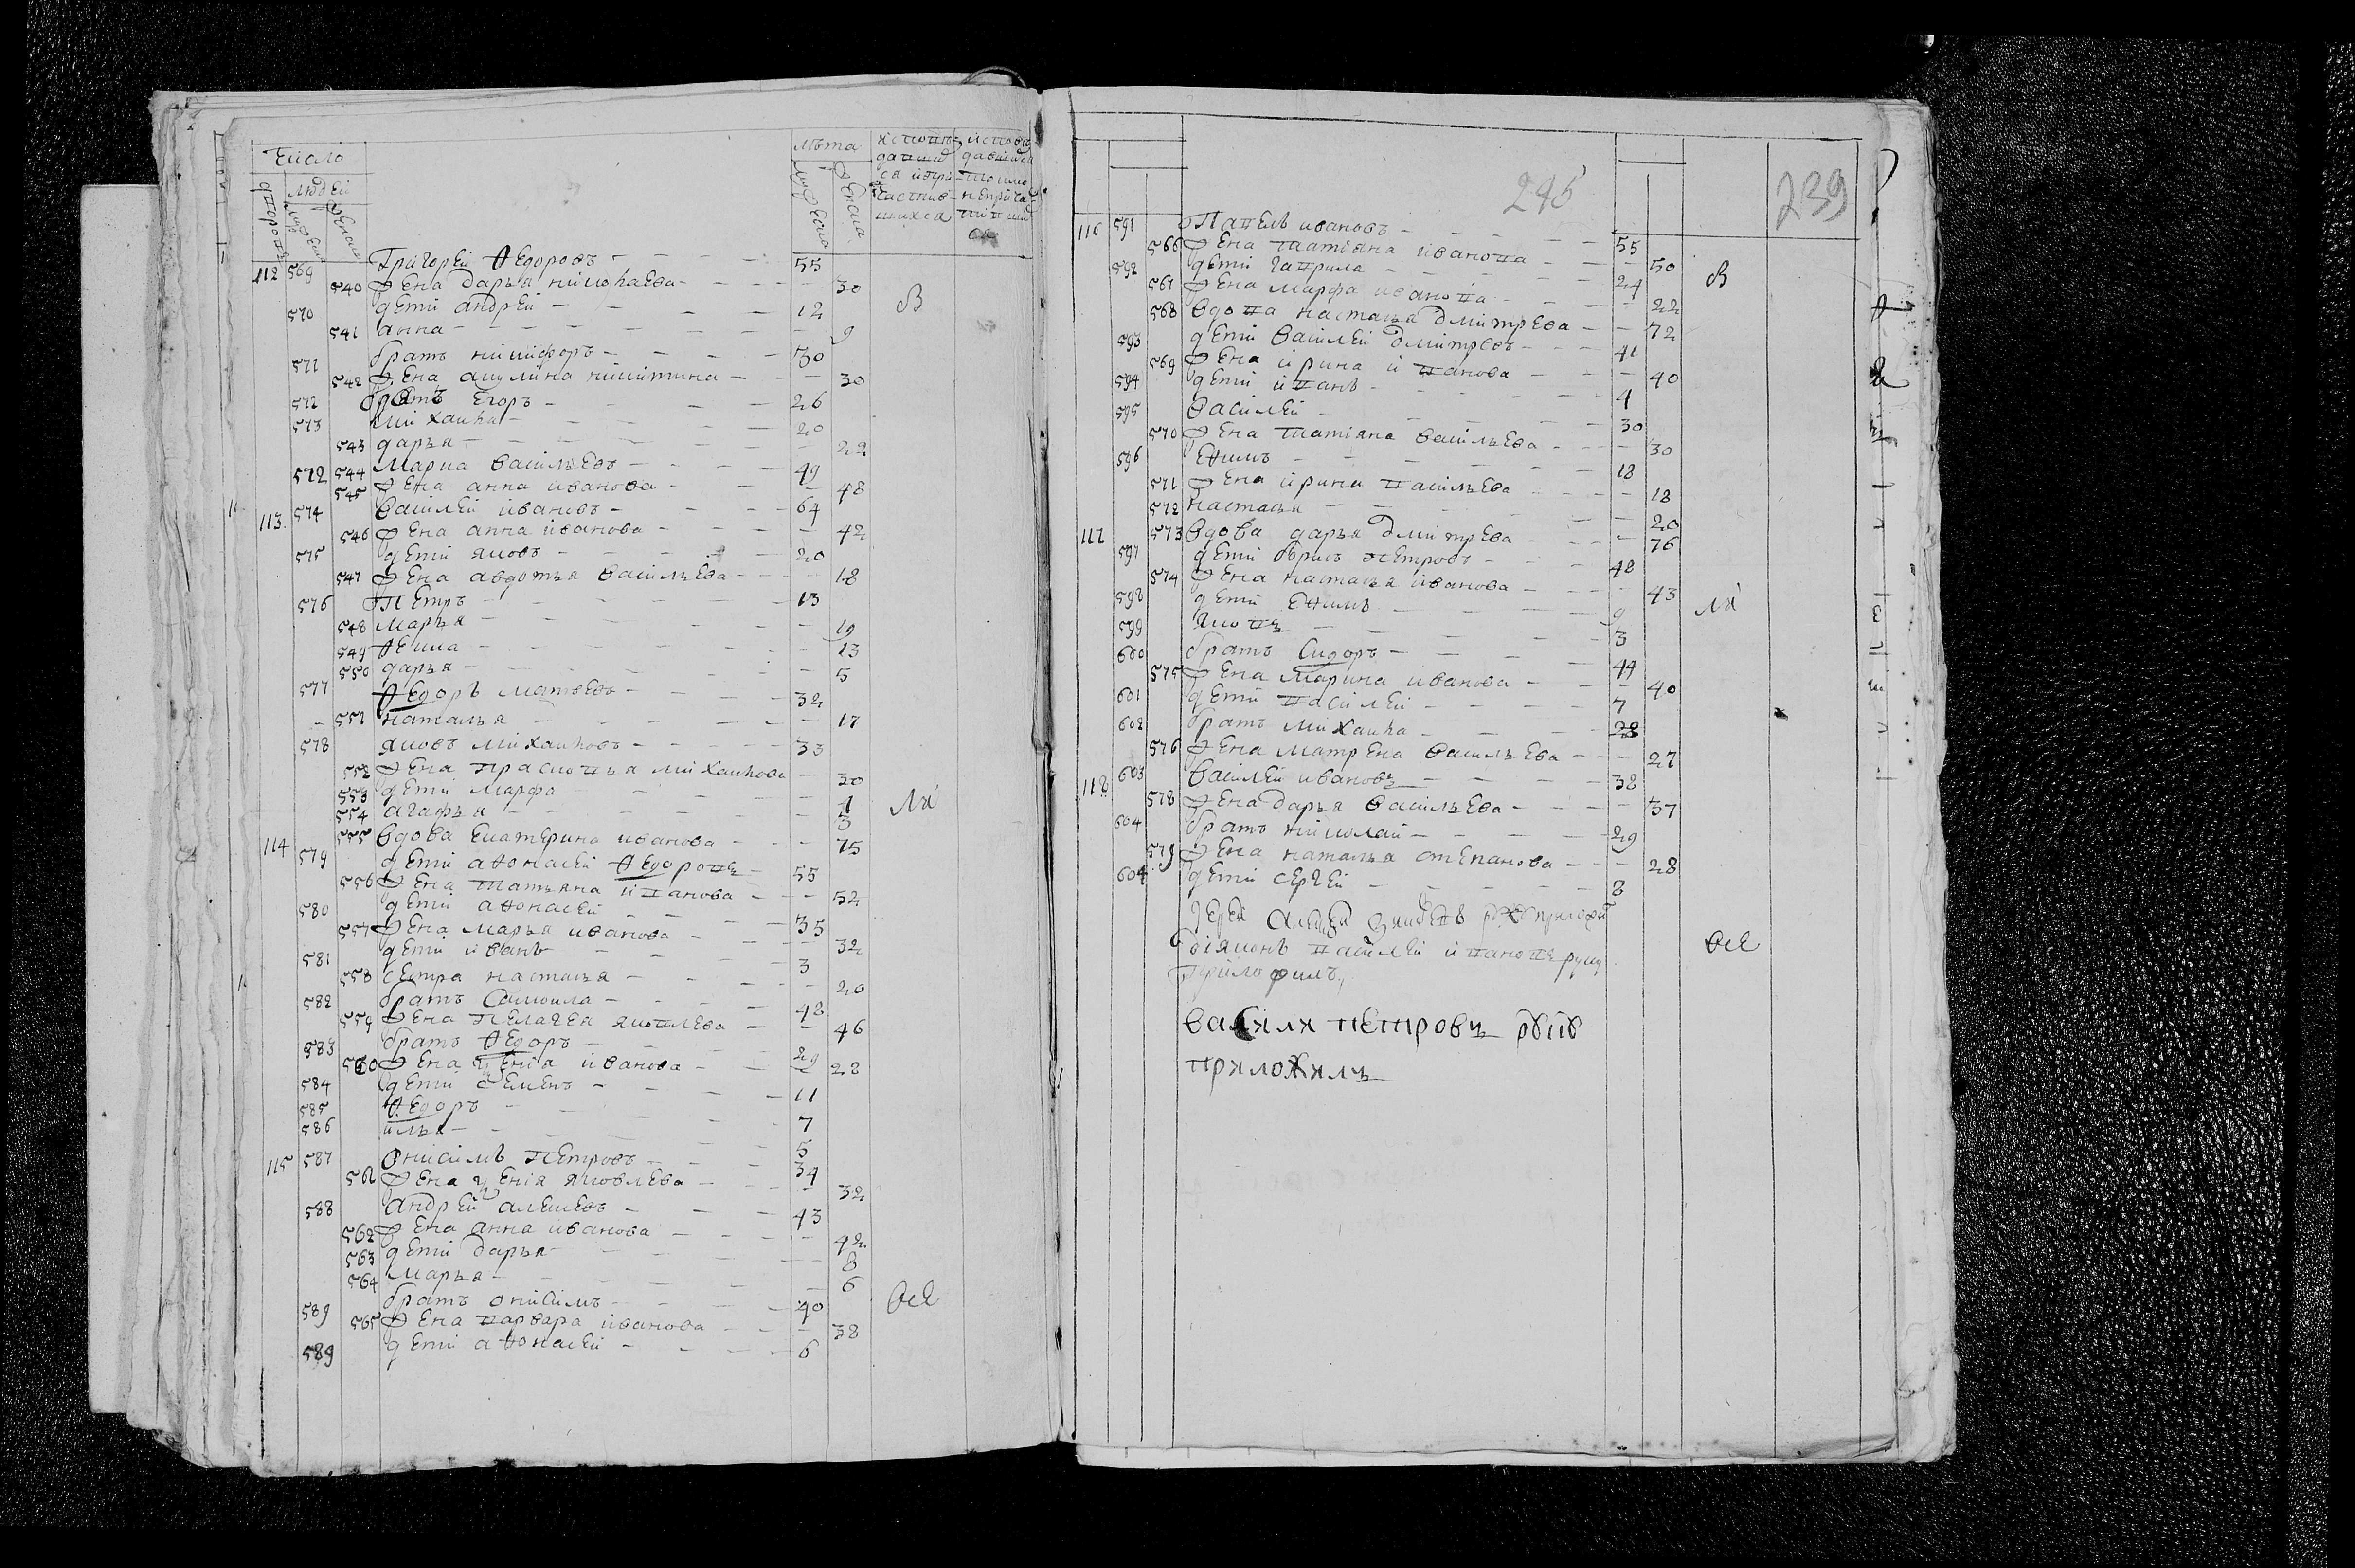 Число
людей
дворовъ
мужеска
женска
лѣта
мужеска
женска
исповѣ- исповѣ
давши давшися
ся и при- токмо
частив- неприча
шихся стивши
112 569 Григорей Ѳедоровъ 55
540 Жена дарья николаева 30
570 дети андрей 12 В
541 анна 9
571 братъ никифоръ 30
542 Жена акулина никитина 30
572 братъ Егоръ 26
573 михаила 20
543 дарья 22
572 544 Марка васильевъ 49
545 Жена анна иванова 48
113 574 василей ивановъ 64
546 Жена анна иванова 42
575 дети яковъ 20
547 Жена авдотья васильева 18
576 Петръ 13
548 марья 19
549 Ѳекла 13
550 дарья 5
577 Ѳедоръ матвевъ 32
551 наталья 17
578 яковъ михаиловъ 33
552 Жена прасковья михаилова 30
553 дети марфа 1
554 агафья 3 ли
114 555 вдова екатерина иванова 75
579 дети аѳонасей Ѳедоровъ 55
556 Жена татьяна иванова 52
580 дети аѳонасей 35
557 Жена марья иванова 32
581 дети иванъ 3
558 сестра настасья 20
582 братъ самоила 48
559 Жена пелагея яковлева 46
583 братъ Ѳедоръ 29
560 Жена ѯения иванова 28
584 дети семенъ 11
585 Ѳедоръ 7
586 илья 5
115 587 онисимъ петровъ 34
561 Жена ѯения яковлева 32
588 андрей алексевъ 43
562 Жена анна иванова 42
563 дети дарья 8
564 марья 6
589 братъ онисимъ 40 все
565 Жена варвара иванова 38
589 дети аѳонасей 6
245 239
116 591 Павелъ ивановъ 55
566 Жена татияна иванова 50
592 дети гаврила 24 В
567 Жена марфа иванова 22
568 вдова настасья дмитрева 72
593 дети василей дмитревъ 41
569 Жена ирина иванова 40
594 дети иванъ 4
595 василей 30
570 Жена татияна васильева 30
596 Еѳимъ 18
571 Жена ирина васильева 18
572 настасья 20
117 573 вдова дарья дмитрева 76
597 дети борисъ петровъ 48
574 Жена настасья иванова 43
598 дети Еѳимъ 9 ли
599 яковъ 3
600 братъ Сидоръ 44
575 Жена марина иванова 40
601 дети василей 7
602 братъ михаила 28
576 Жена матрена васильева 27
118 603 василей ивановъ 38
578 Жена дарья васильева 37
604 братъ николай 29
579 Жена наталья степанова 28
604 дети сергей 8
иерей алеѯей
диаконъ василей ивановъ руку все
приложилъ
василя петровъ
приложилъ